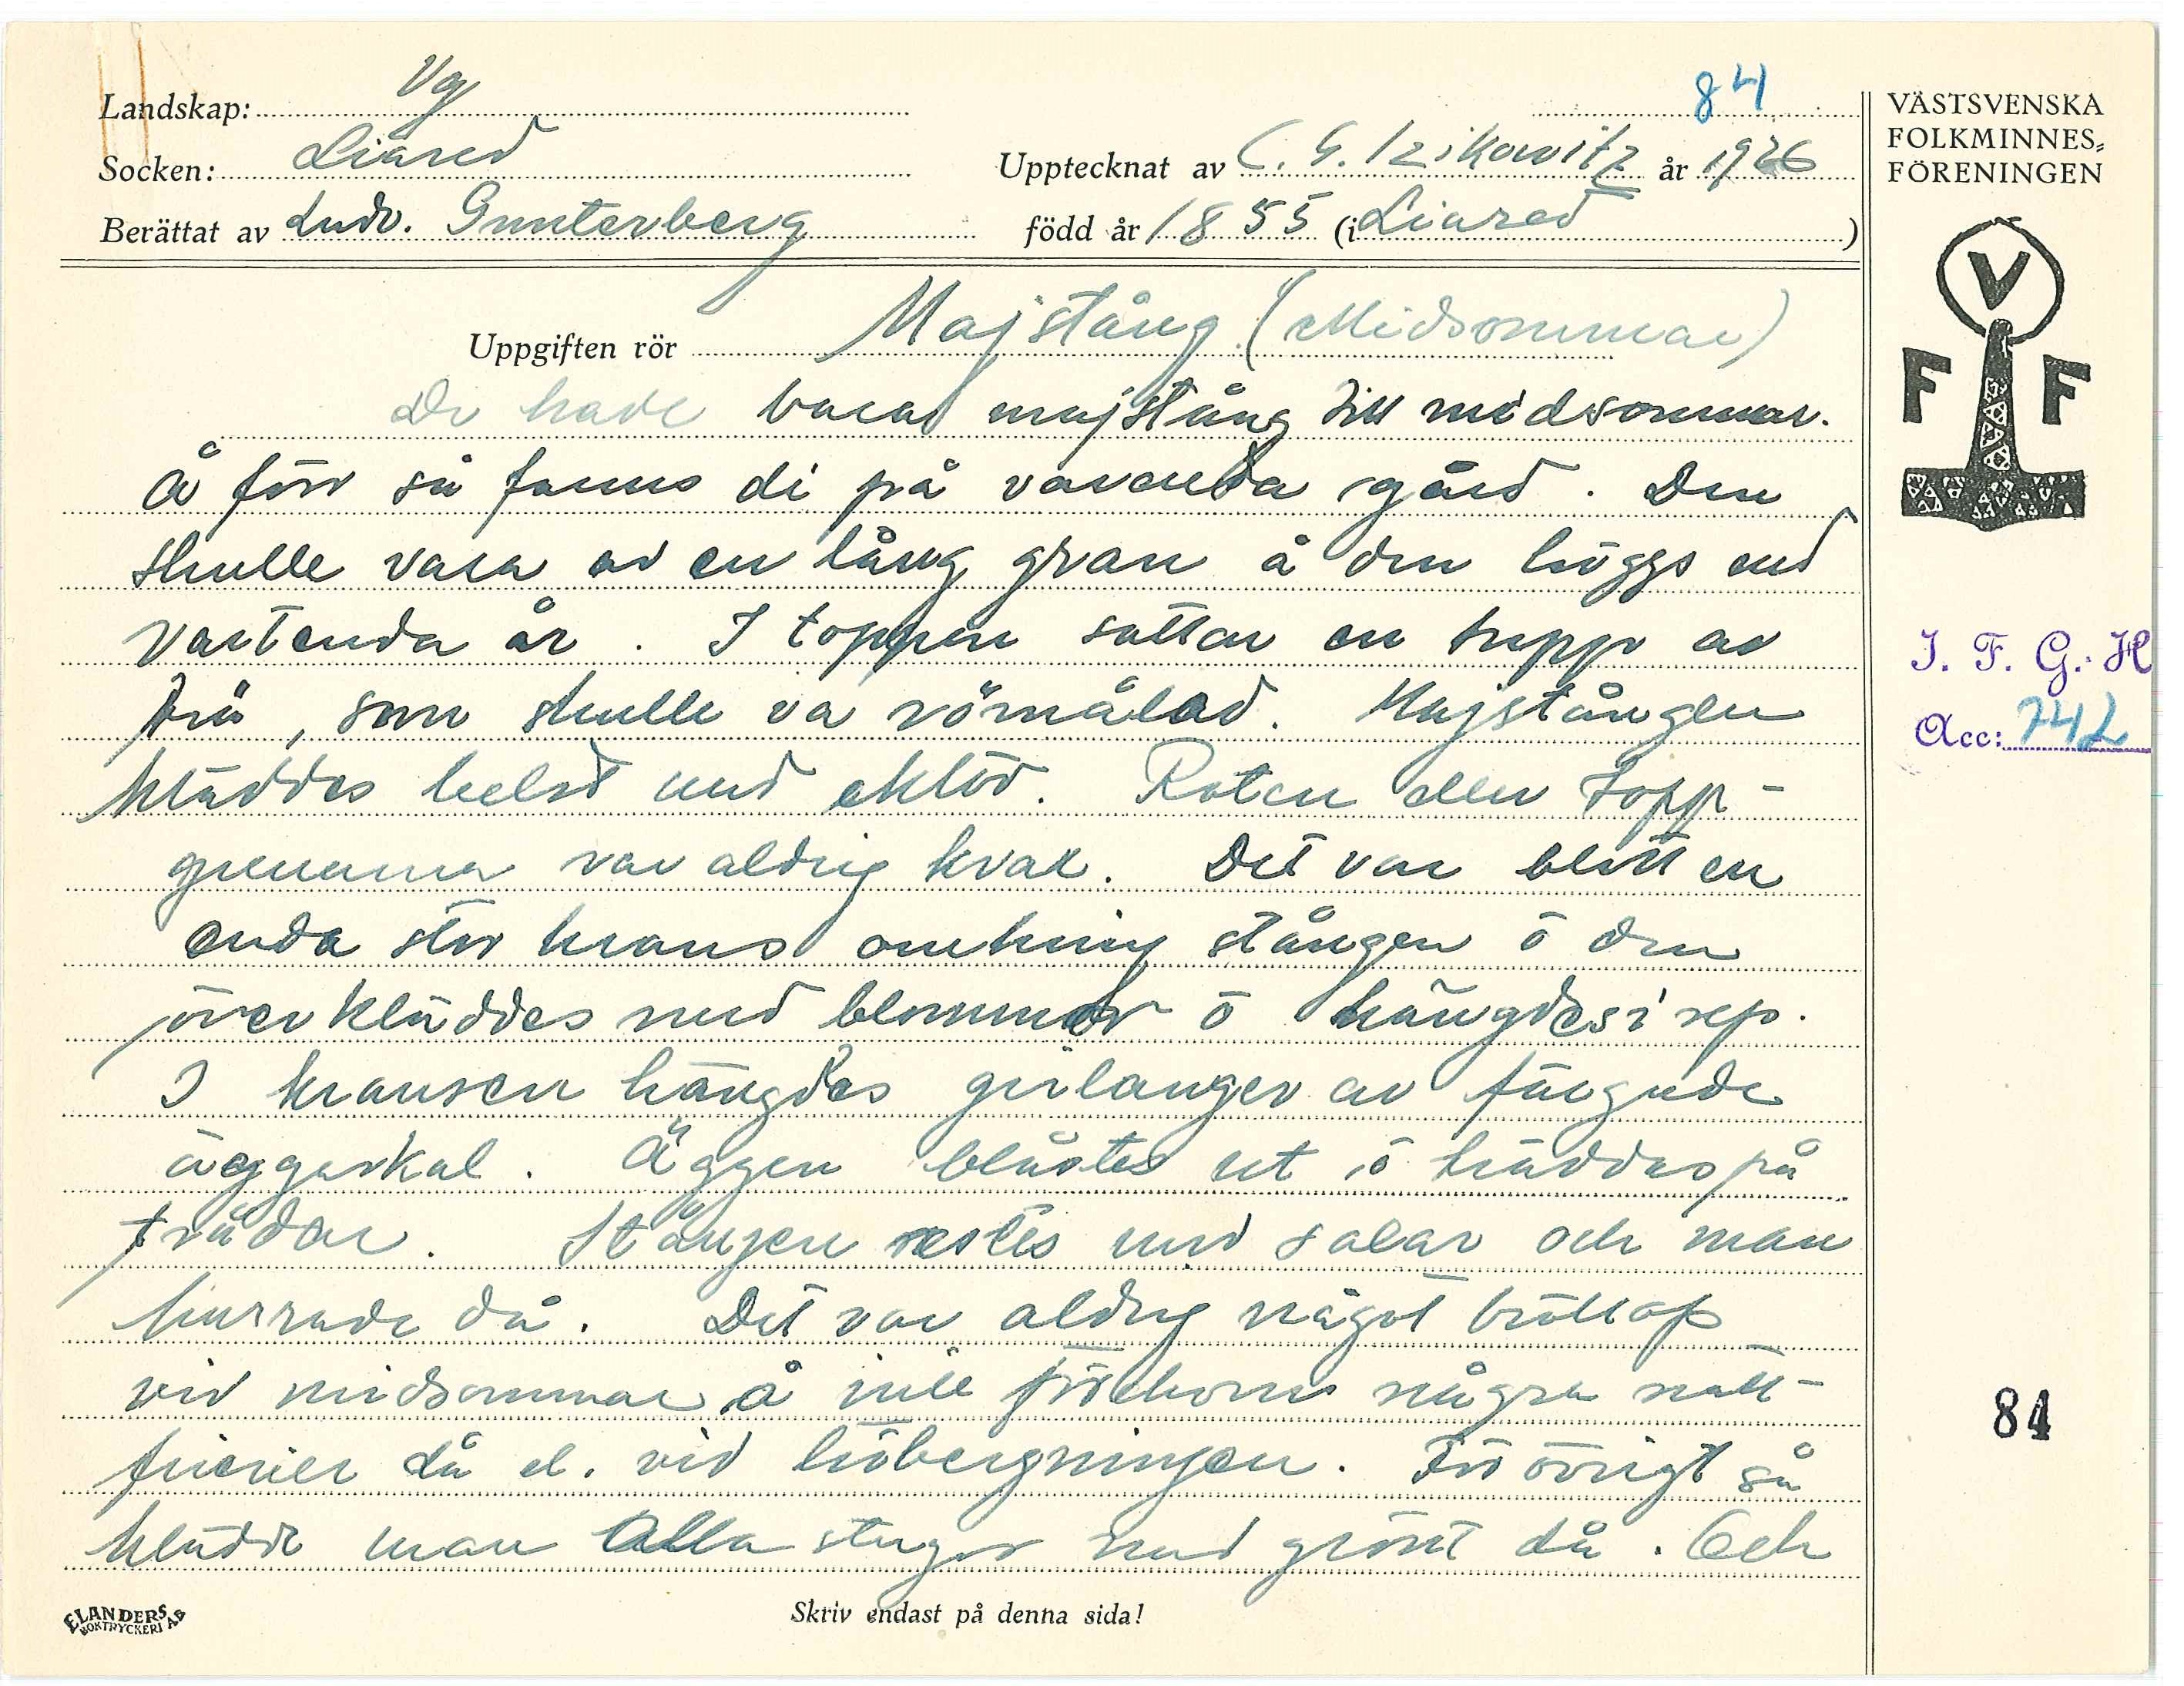 84
Landskap: Vg
Socken: Liared
Upptecknat av C. G. Izikowitz år 1926
Berättat av Ludv. Gunterberg
född år 1855 (i Liared)
VÄSTSVENSKA
FOLKMINNES-
FÖRENINGEN
V
F F
Uppgiften rör Majstång (Midsommar)
De hade bara majstång till midsommar.
Å förr så fanns di på varenda gård. Den
skulle vara av en lång gran å den höggs ned
vartenda år. I toppen satt en tupp av
trä, som skulle va römålad. Majstången
kläddes helst med eklöv. Roten eller topp-
grenarna var aldrig kvar. Det var blott en
enda stor krans omkring stången ö den
överkläddes med blommor ö hängdes i rep.
I kransen hängdes girlanger av färgade
äggaskal. Äggen blåstes ut ö träddes på
trådar. Stången restes med salar och man
hurrade då. Det var aldrig något bröllop
vid midsommar å inte förekom några natt-
frierier då el. vid höbergningen. För övrigt så
klädde man alla stugor med grönt då. Och
I. F. G. H
Acc: 742
84
ELANDERS
BOKTRYCKERI AB
Skriv endast på denna sida!